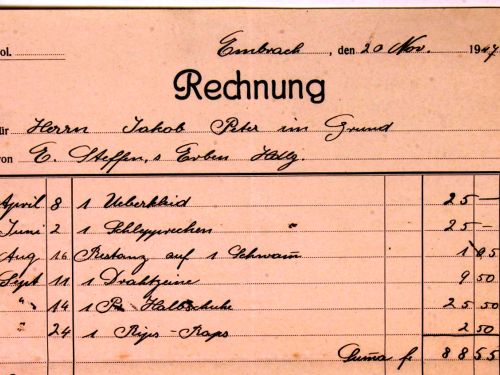 ol. Embrach, den 20 Nov. 1947
Rechnung
für Herrn Jakob Peter im Grund
von E. Steffen's Erben Hdlg.
April 8 1 Ueberkleid 25 —
Juni 2 1 Schlepprechen " 25 —
Aug 16 Restanz auf 1 Schwamm 1 05
Sept 11 1 Drahtzeine 9 50
" 14 1 Pr Halbschuhe 25 50
" 24 1 Rips-Kaps 2 50
Suma fr 88 55